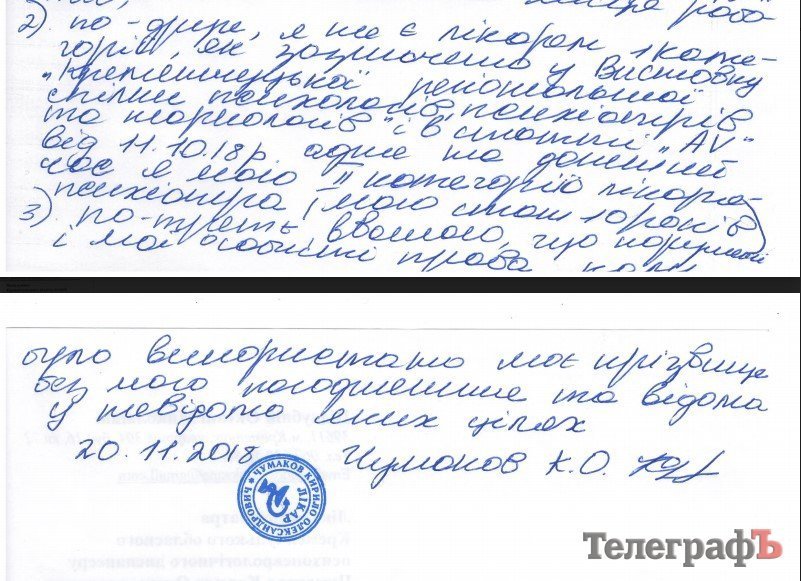 2) по-друге, я не є лікарем 1 кате-
горії, як зазначено у Висновку
"Кременчуцької регіональної
спілки психологів, психіатрів
та наркологів" і в статті "AV"
від 11.10.18р. адже на даний
час я маю II категорію лікаря-
психіатра (маю стаж 10 років)
3) по-третє вважаю, що порушені
і мої особисті права, коли
було використано моє прізвище
без мого погодження та відома
у невідомо яких цілях
20.11.2018 Чумаков К.О.
ЧУМАКОВ КИРИЛО ОЛЕКСАНДРОВИЧ
ЛІКАР
ТелеграфЪ